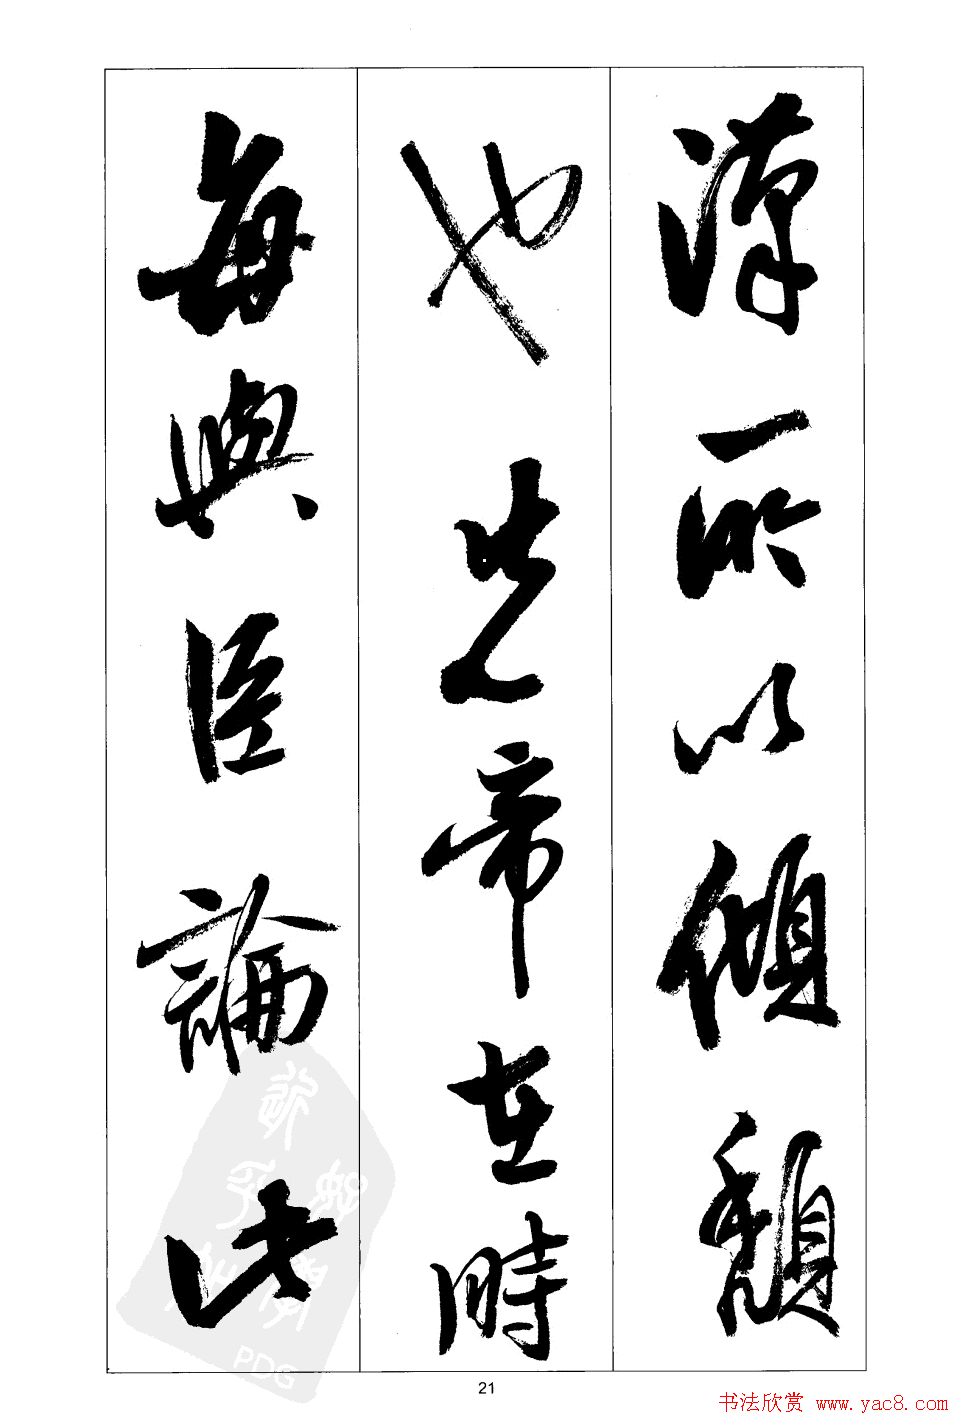 漢所以傾頹
也先帝在時
每與臣論此
21
书法欣赏 www.yac8.com
PDG